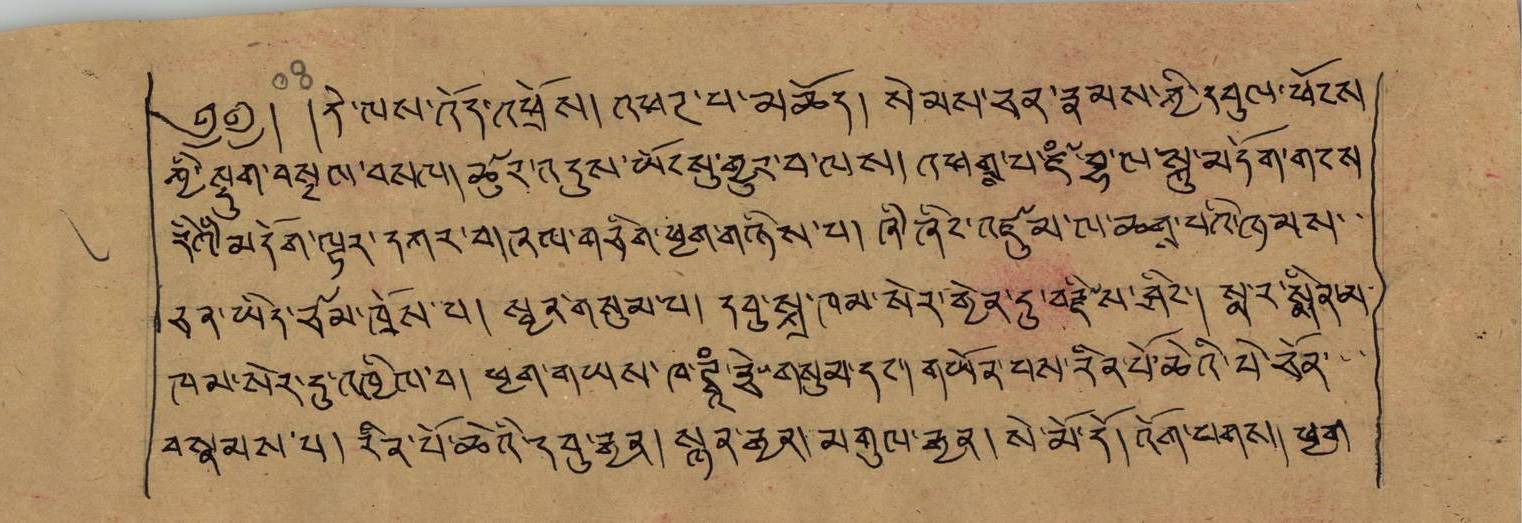 ༄༅། །དེ་ལས་འོད་འཕྲོས། འཕགས་པ་མཆོད། སེམས་ཅན་རྣམས་ཀྱི་དབུལ་ཕོངས
ཀྱི་སྡུག་བསྔལ་བསལ། ཚུར་འདུས་ཡོངསུ་གྱུར་བ་ལས། འཕགས་པ་ཛཾ་བྷ་ལ་སྐུ་མདོག་གངས
རིའི་མདོག་ལྟར་དཀར་བ། ཞལ་གཅིག་ཕྱག་གཉིས་པ། ཞི་ཞིང་འཛུམ་ལ་ཆགས་པའི་ཉམས་
ཅན་ཡིད་ཙམ་ཁྲོས་པ། སྤྱན་གསུམ་པ། དབུ་སྐྲ་ཁམ་སེར་གྱེན་དུ་བརྫེས་ཤིང་། སྨ་ར་སྨིན་མ་
ཁམ་སེར་དུ་འཁྱིལ་བ། ཕྱག་གཡས་ཁ་ཊྭཾ་རྩེ་གསུམ་དང་། གཡོན་པས་རིན་པོ་ཆེའི་བེ་ཅོན་
བསྣམས་པ། རིན་པོ་ཆེའི་དབུ་རྒྱན། སྙན་རྒྱན། མགུལ་རྒྱན། སེ་མོ་དོ། འོག་པགས། ཕྱག